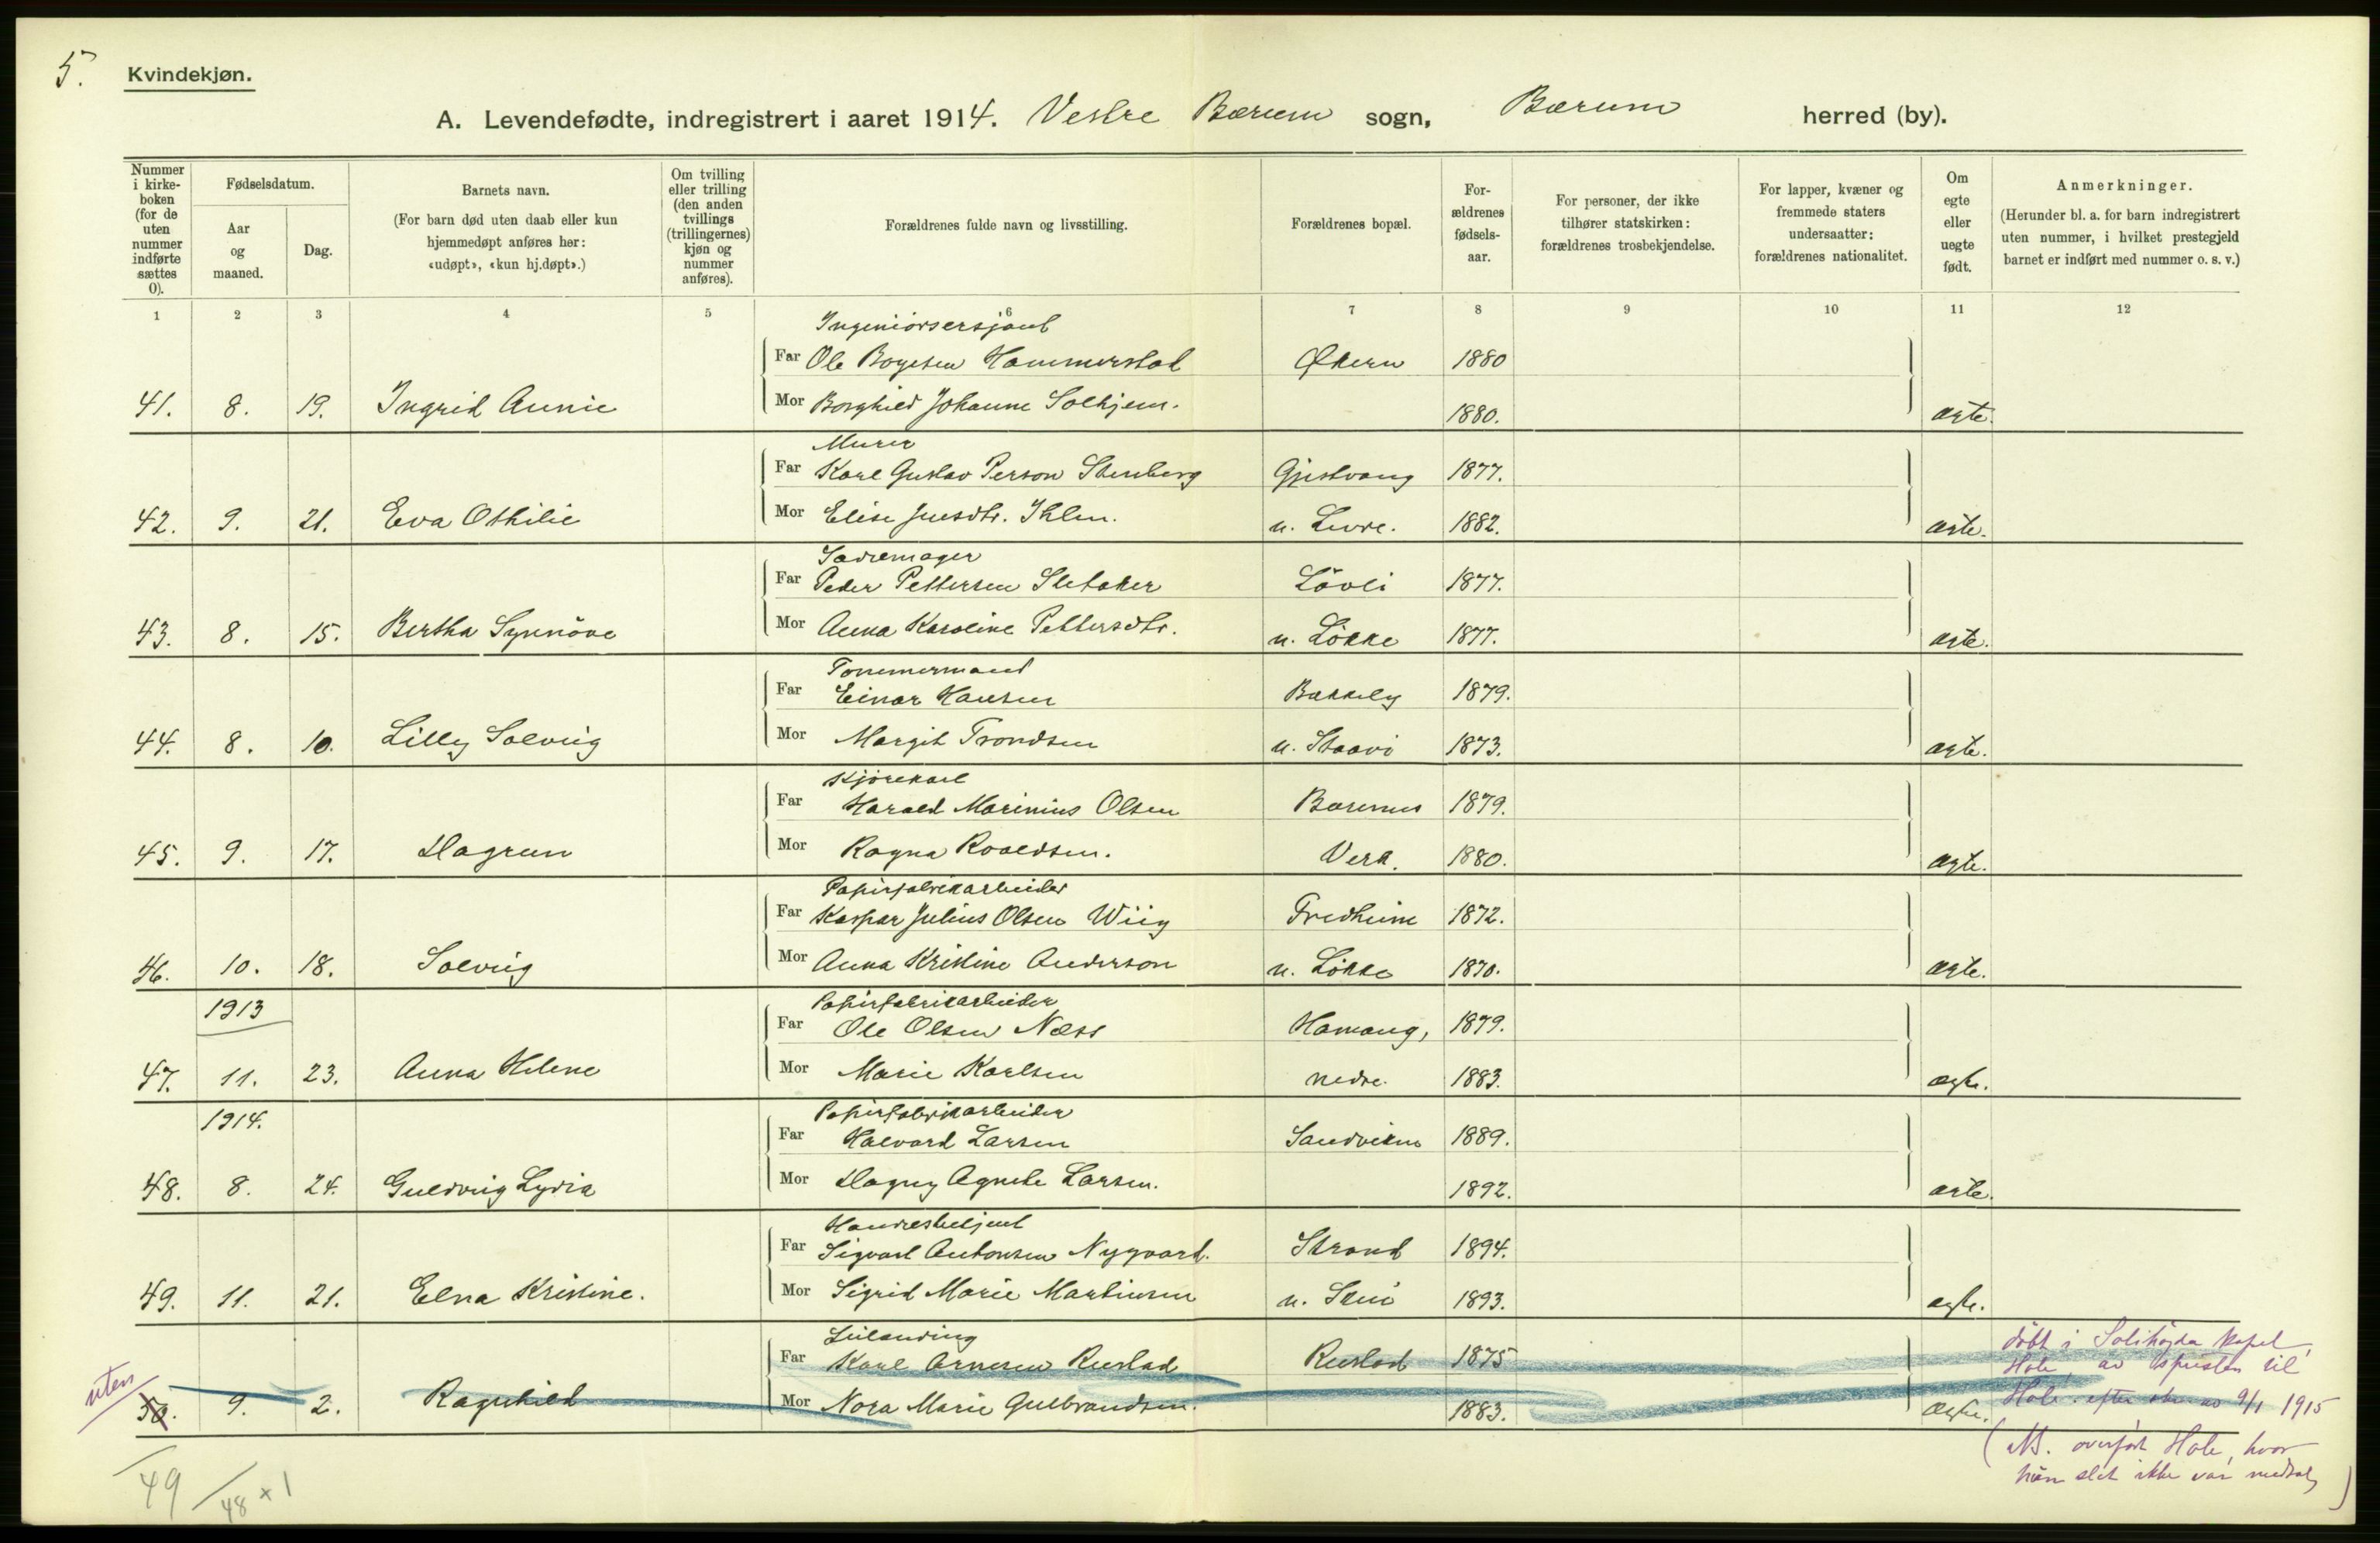 5.
Kvindekjøn.
A. Levendefødte, indregistrert i aaret 1914. Vestre Bærum sogn, Bærum herred (by).
Nummer i kirkeboken (for de uten nummer indførte sættes 0).
Fødselsdatum.
Aar og maaned.
Dag.
Barnets navn.
(For barn død uten daab eller kun hjemmedøpt anføres her: «udøpt», «kun hj.døpt».)
Om tvilling eller trilling (den anden tvillings (trillingernes) kjøn og nummer anføres).
Forældrenes fulde navn og livsstilling.
Forældrenes bopæl.
Forældrenes fødselsaar.
For personer, der ikke tilhører statskirken: forældrenes trosbekjendelse.
For lapper, kvæner og fremmede staters undersaatter: forældrenes nationalitet.
Om egte eller uegte født.
Anmerkninger.
(Herunder bl. a. for barn indregistrert uten nummer, i hvilket prestegjeld barnet er indført med nummer o. s. v.)
1 2 3 4 5 6 7 8 9 10 11 12
Ingeniørsersjant
Far Ole Boyesen Hammerstad Økern 1880
41. 8. 19. Ingrid Annie Mor Borghild Johanne Solhjem. 1880. ægte.
Murer
Far Karl Gustav Person Stenberg Gjestvang 1877.
42. 9. 21. Eva Othilie Mor Elise Jensdtr. Ihlen. u. Levre. 1882. ægte.
Sadelmager
Far Peder Pettersen Sletaker Lövli 1877.
43. 8. 15. Bertha Synnöve Mor Anna Karoline Pettersdtr. u. Lökke 1877. ægte.
Tømmermand
Far Einar Hansen Bakkely 1879.
44. 8. 10. Lilly Solveig Mor Margit Trondsen u. Staavi 1873. ægte.
Kjørekarl
Far Harald Marinius Olsen Bærums 1879.
45. 9. 17. Dagrun Mor Ragna Roaldsen. Verk. 1880. ægte.
Papirfabrikarbeider
Far Kaspar Julius Olsen Wiig Fredheim 1872.
46. 10. 18. Solveig Mor Anna Kristine Anderson u. Lökke 1870. ægte.
1913
Papirfabrikarbeider
Far Ole Olsen Næss Hamang, 1879.
47. 11. 23. Anna Helene Mor Marie Karlsen nedre. 1883. ægte.
1914.
Papirfabrikarbeider
Far Halvard Larsen Sandviken 1889.
48. 8. 24. Guldveig Lydia Mor Dagny Agnete Larsen. 1892. ægte.
Handelsbetjent
Far Sigvart Antonsen Nygaard. Strand 1894.
49. 11. 21. Elna Kristine. Mor Sigrid Marie Martinsen u. Skui 1893. ægte.
Leilending
Far Karl Arnesen Rustad Rustad 1875
uten 50. 9. 2. Ragnhild Mor Nora Marie Gulbrandsen. 1883. ægte.
döbt i Solihøgda kapel,
Hole, av sspresten til
Hole. efter 9/1 1915
(NB. overført Hole, hvor
hun slet ikke var medtat)
49 48 + 1